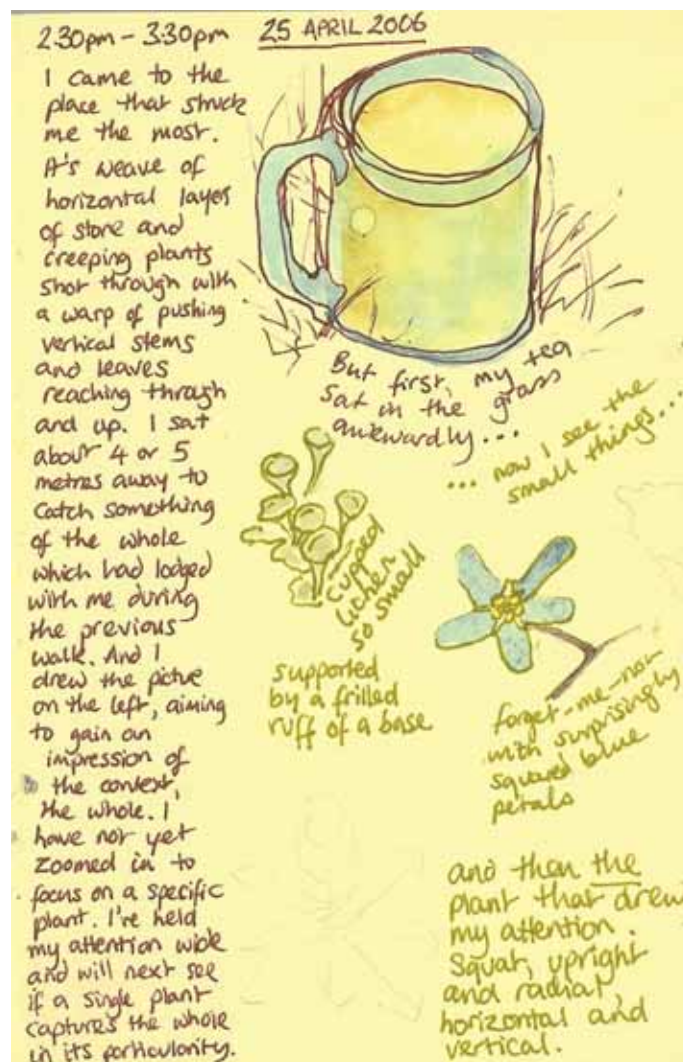 2.30pm – 3.30pm
25 APRIL 2006
I came to the
place that struck
me the most.
It's weave of
horizontal layers
of stone and
creeping plants
shot through with
a warp of pushing
vertical stems
and leaves
reaching through
and up. I sat
about 4 or 5
metres away to
catch something
of the whole
which had lodged
with me during
the previous
walk. And I
drew the picture
on the left, aiming
to gain an
impression of
the context,
the whole. I
have not yet
zoomed in to
focus on a specific
plant. I've held
my attention wide
and will next see
if a single plant
captures the whole
in its particularity.
But first, my tea
sat in the grass
awkwardly...
... now I see the
small things...
cupped
lichen
so small
supported
by a frilled
ruff of a base
forget-me-not
with surprisingly
squared blue
petals
and then the
plant that drew
my attention.
Squat, upright
and radial,
horizontal and
vertical.